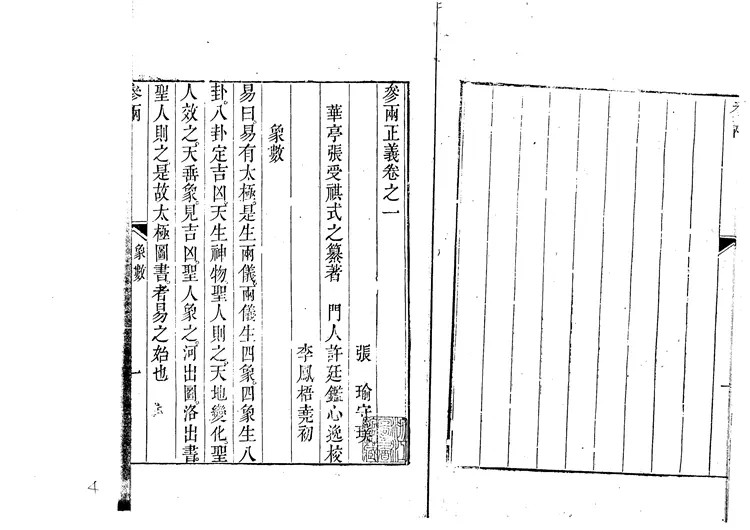 參兩正義卷之一
張瑜守璞
華亭張受祺式之纂著 門人許廷鑑心逸校
李鳳梧堯初
象數
易曰。易有太極。是生兩儀。兩儀生四象。四象生八
卦。八卦定吉凶。天生神物。聖人則之。天地變化。聖
人效之。天垂象。見吉凶。聖人象之。河出圖。洛出書。
聖人則之。是故太極圖書者。易之始也
參兩
象數
一
4